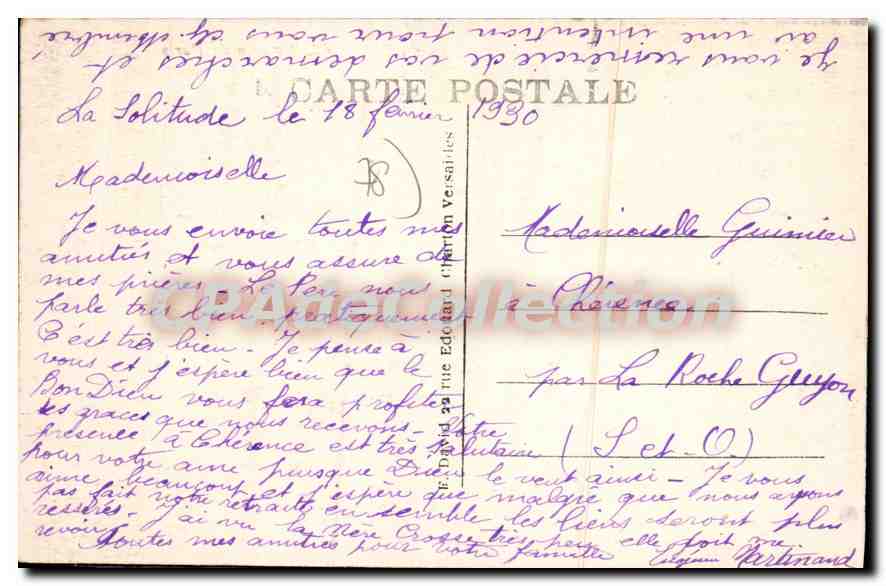 Je vous remercie de vos demarches et
av une intention pour vous
CARTE POSTALE
La Solitude le 18 février 1930
78
Mademoiselle
Je vous envoie toutes mes
amitiés et vous assure de
mes prières - Le Père nous
parle très bien pratiquement
C'est très bien - Je pense à
vous et j'espère bien que le
Bon Dieu vous fera profiter
des graces que nous recevons - Votre
présence à Chérence est très salutaire
pour votre ame puisque Dieu le veut ainsi - Je vous
aime beaucoup et j'espère que malgré que nous ayons
pas fait notre retraite ensemble les liens seront plus
resserés - J'ai vu la Mère Crosse très peu elle doit me
revoir
Toutes mes amitiés pour votre famille
Martinand
E. David 22 rue Edouard Charton Versailles
Mademoiselle Guimier
à Chérence
par La Roche Guyon
(S et O)
CPAdeCollection